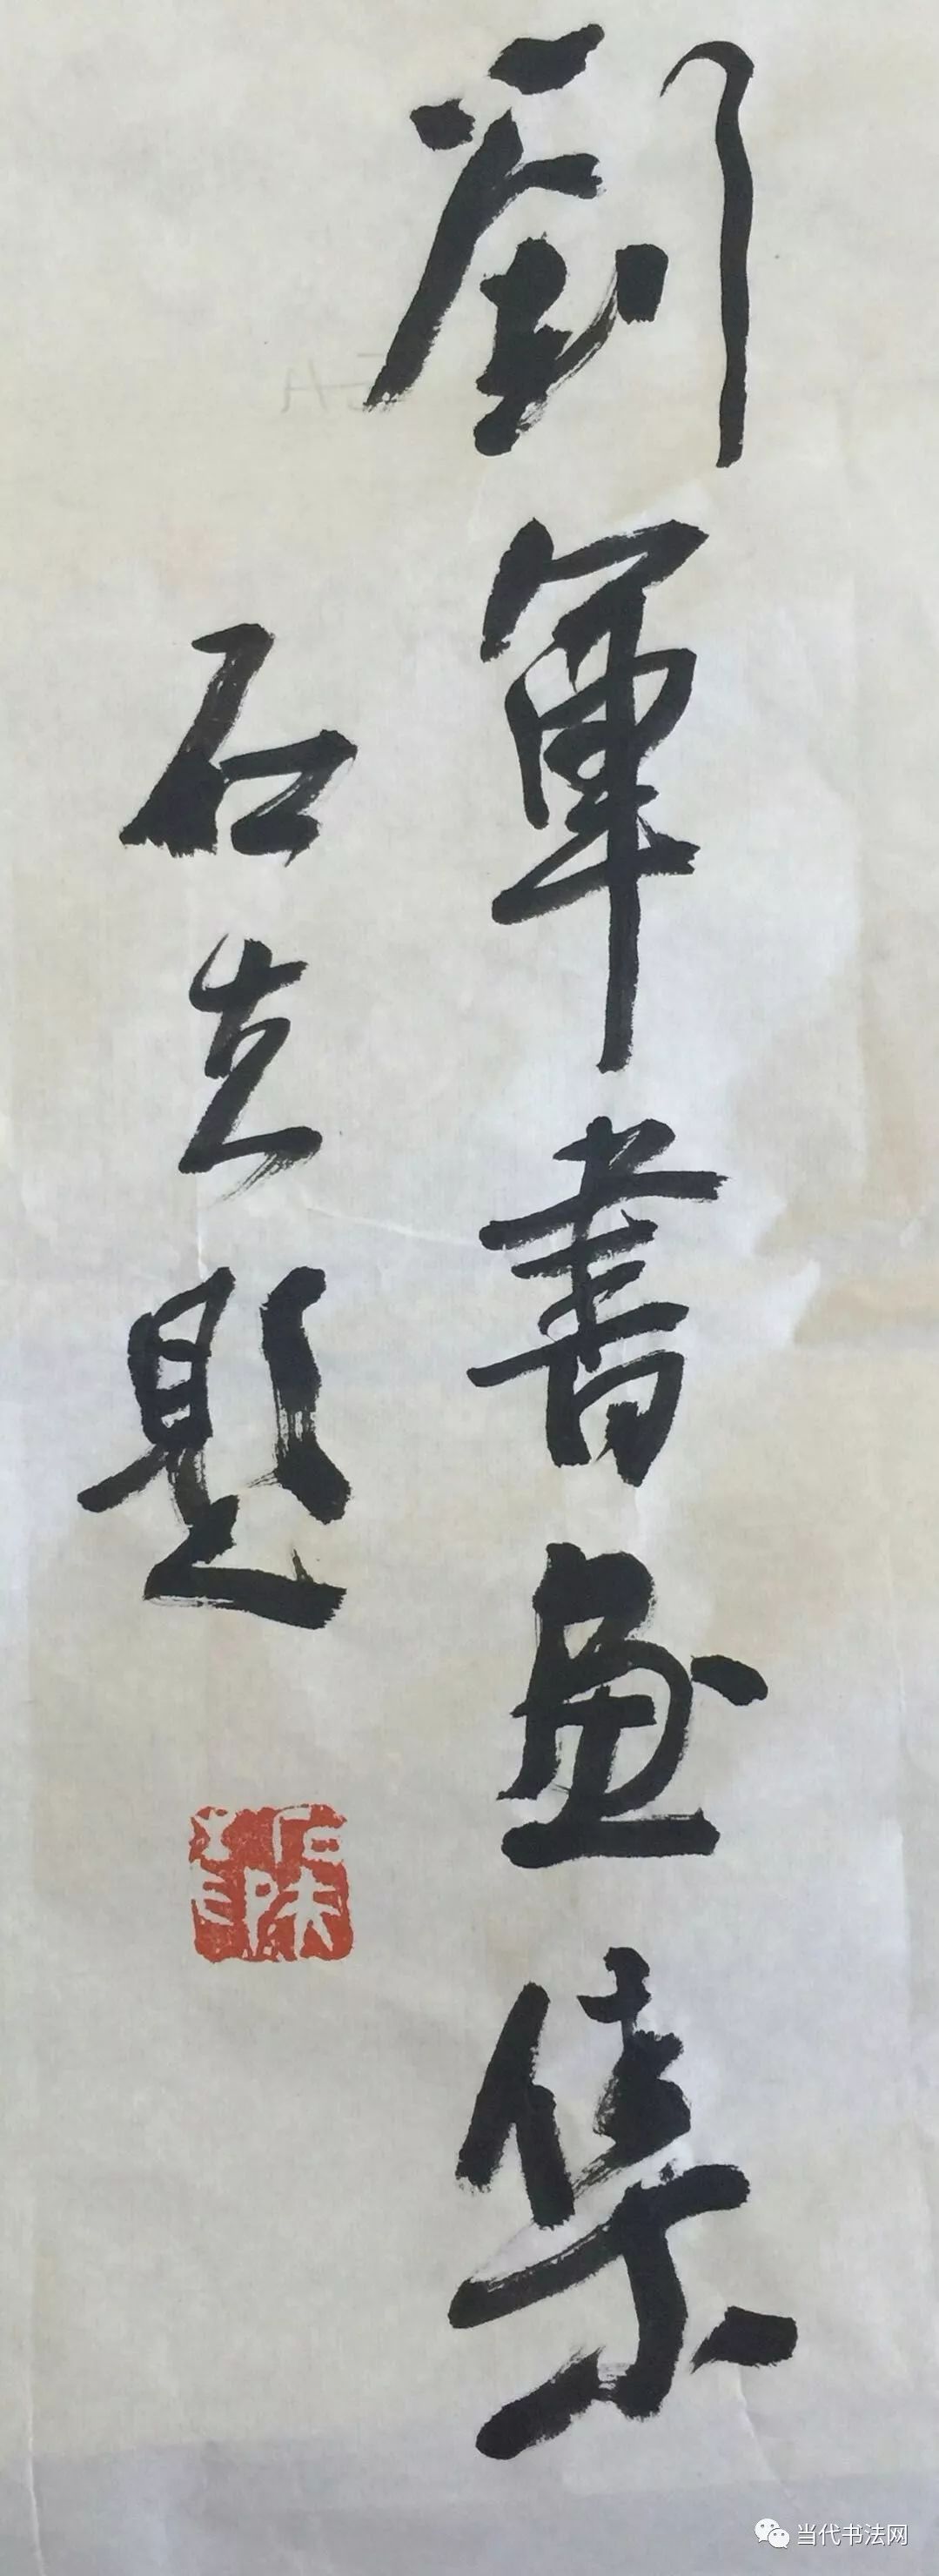 劉軍書畫集
石題
当代书法网